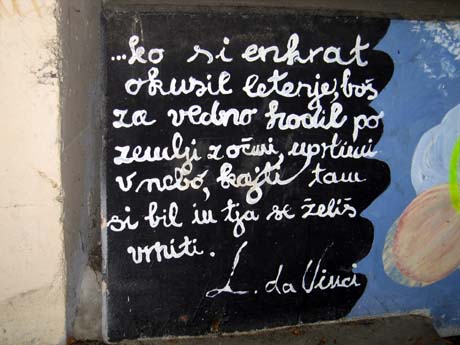 ...ko si enkrat
okusil letenje, boš
za vedno hodil po
zemlji z očmi, uprtimi
v nebo, kajti tam
si bil in tja se želiš
vrniti.
L. da Vinci